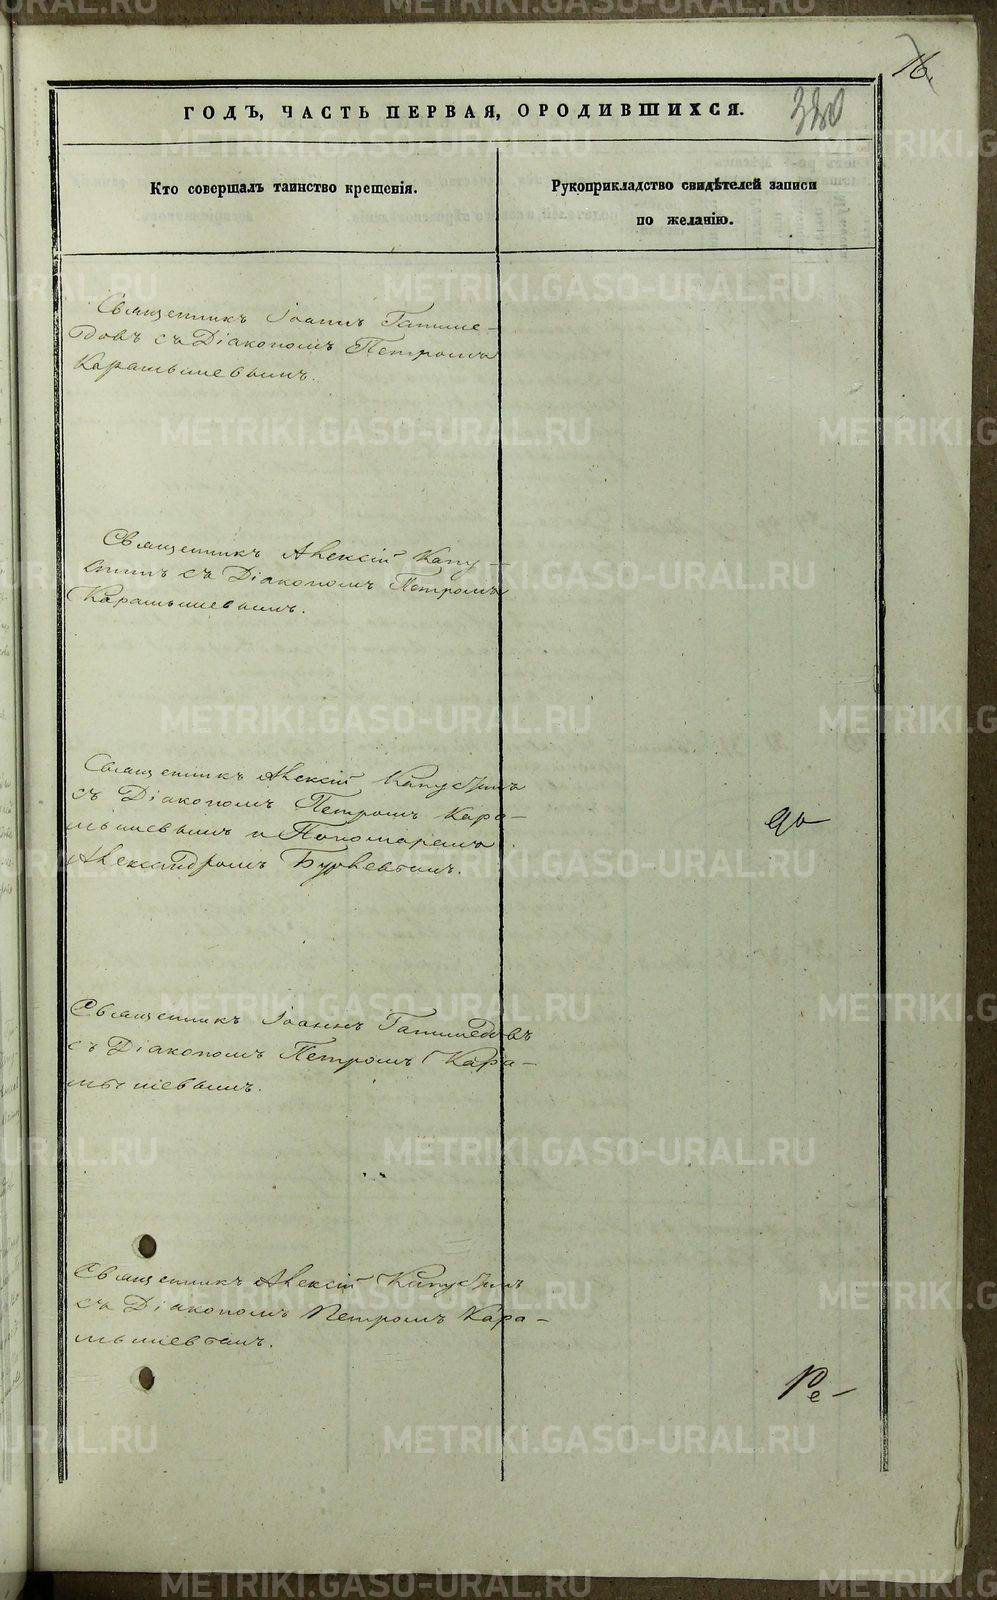 16.
ГОДЪ, ЧАСТЬ ПЕРВАЯ, О РОДИВШИХСЯ.
330
Кто совершалъ таинство крещенія.
Рукоприкладство свидѣтелей записи
по желанію.
Священникъ Іоаннъ Ганиме-
довъ съ Діакономъ Петромъ
Карамышевымъ.
Священникъ Алексій Капу-
стинъ съ Діакономъ Петромъ
Карамышевымъ.
Священникъ Алексій Капустинъ
съ Діакономъ Петромъ Кара-
мышевымъ и Пономаремъ
Александромъ
Священникъ Іоаннъ Ганимедовъ
съ Діакономъ Петромъ Кара-
мышевымъ.
Священникъ Алексій Капустинъ
съ Діакономъ Петромъ Кара-
мышевымъ.
METRIKI.GASO-URAL.RU